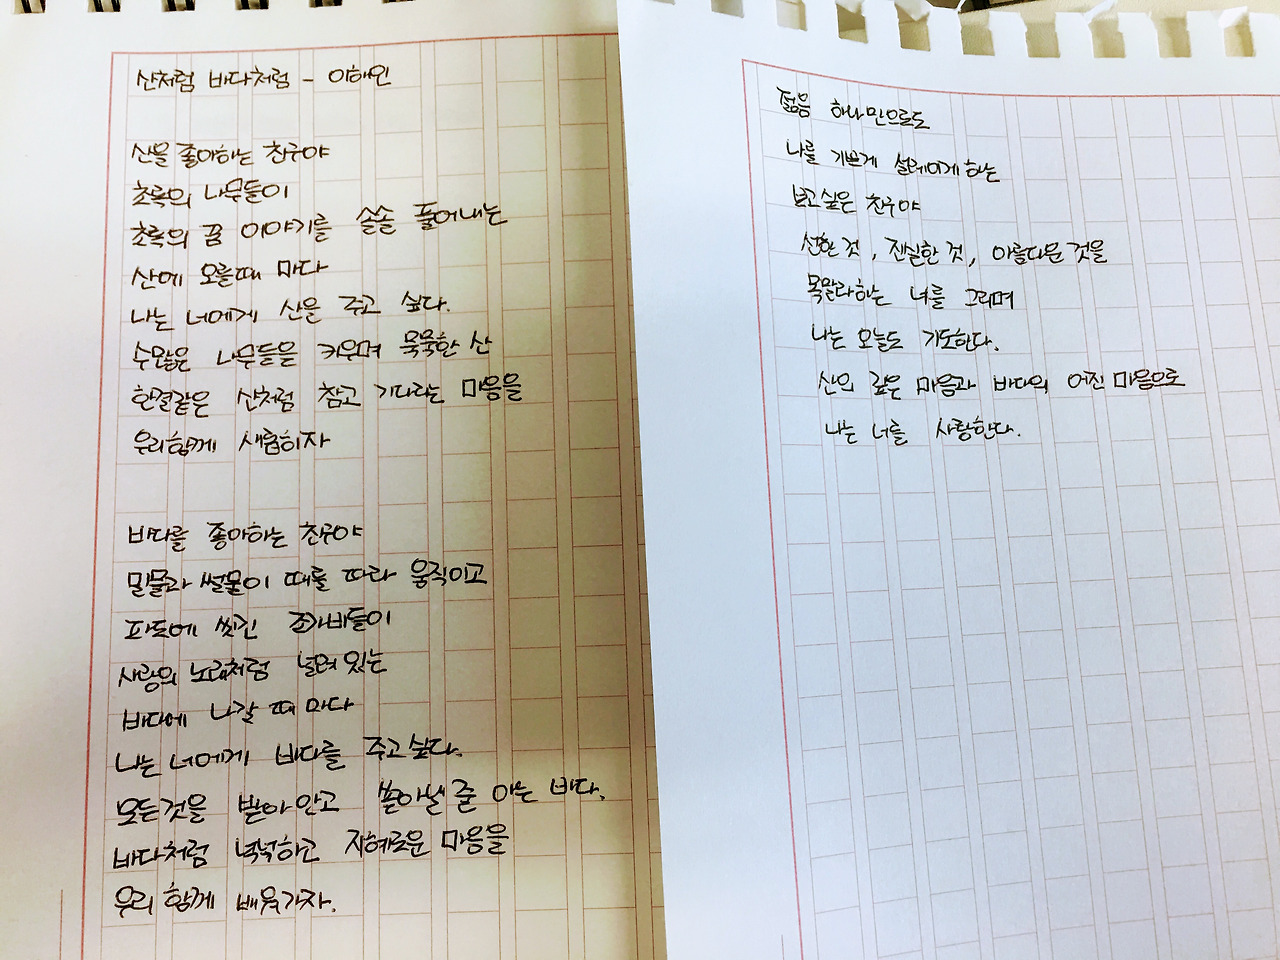 산처럼 바다처럼 - 이해인
산을 좋아하는 친구야
초록의 나무들이
초록의 꿈 이야기를 솔솔 풀어내는
산에 오를때 마다
나는 너에게 산을 주고 싶다.
수많은 나무들을 키우며 묵묵한 산
한결같은 산처럼 참고 기다리는 마음을
우리함께 새롭히자
바다를 좋아하는 친구야
밀물과 썰물이 때를 따라 움직이고
파도에 씻긴 조가비들이
사랑의 노래처럼 널려 있는
바다에 나갈 때 마다
나는 너에게 바다를 주고 싶다.
모든것을 받아 안고 쏟아낼 줄 아는 바다.
바다처럼 넉넉하고 지혜로운 마음을
우리 함께 배워가자.
젊음 하나만으로도
나를 기쁘게 설레이게 하는
보고싶은 친구야
선한 것, 진실한 것, 아름다운 것을
목말라하는 너를 그리며
나는 오늘도 기도한다.
산의 깊은 마음과 바다의 어진 마음으로
나는 너를 사랑한다.